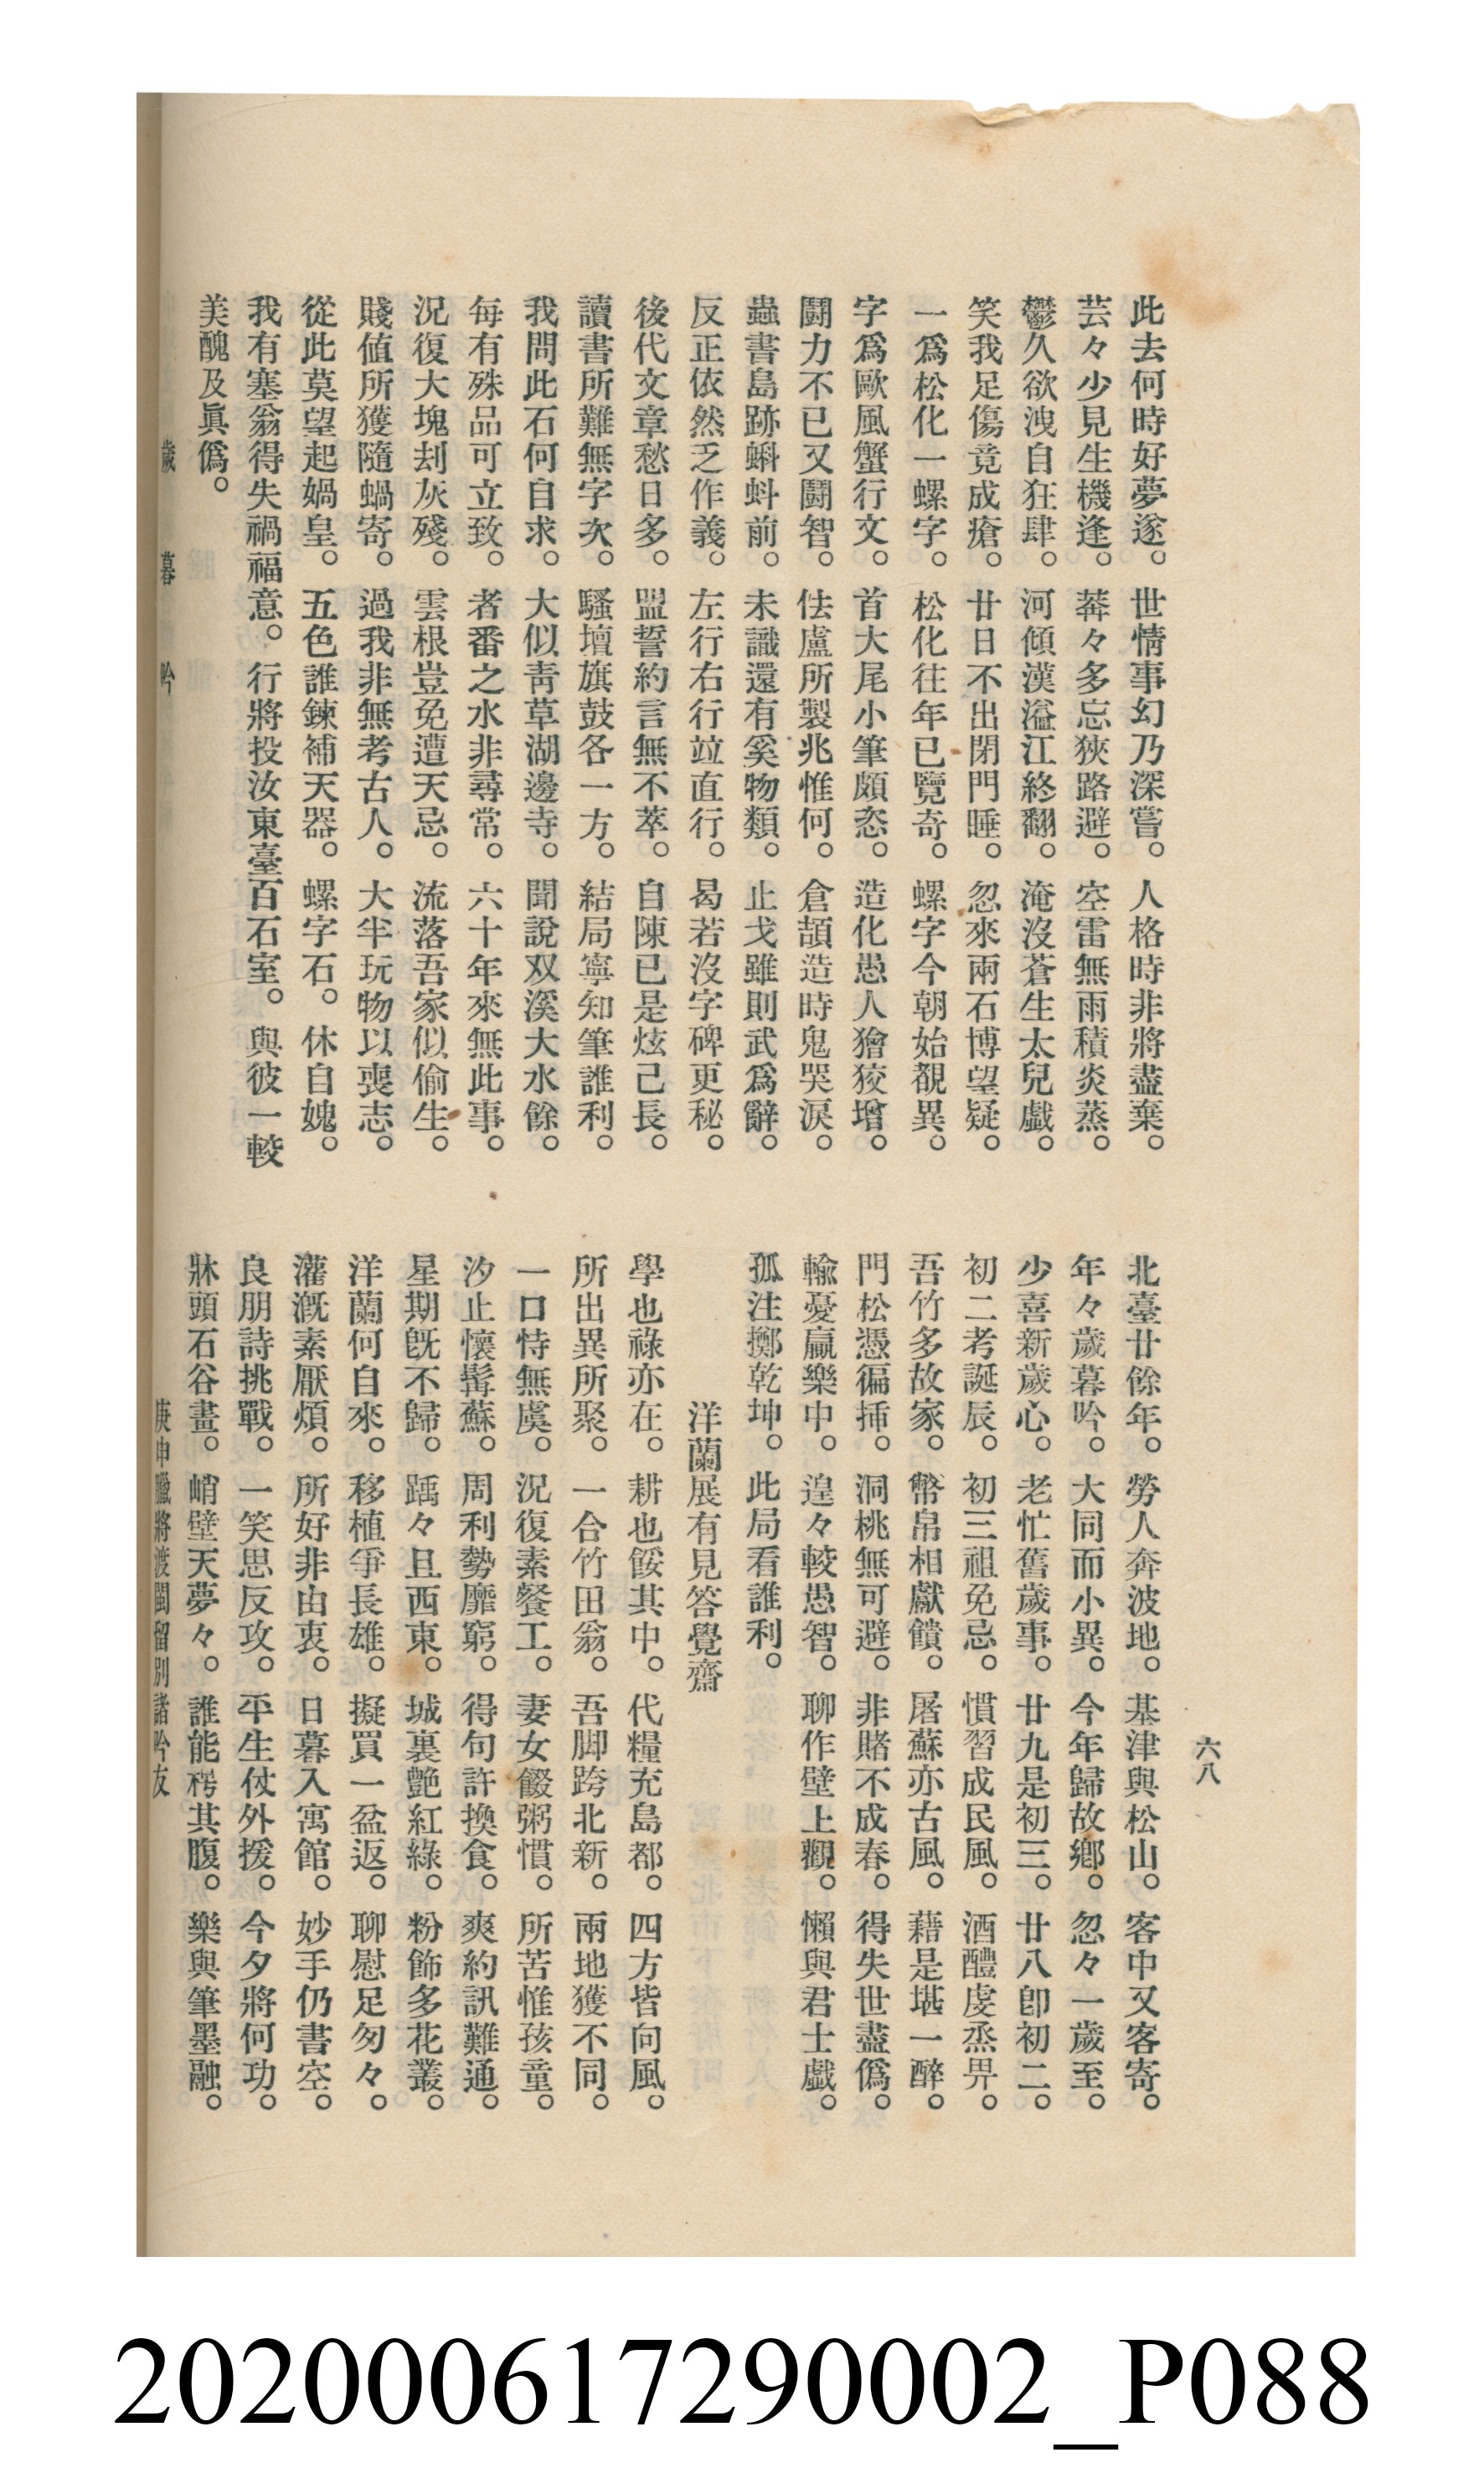 六八
此去何時好夢遂。世情事幻乃深嘗。人格時非將盡棄。
芸々少見生機逢。莽々多忘狹路避。空雷無雨積炎蒸。
鬱久欲洩自狂肆。河傾漢溢江終翻。淹沒蒼生太兒戲。
笑我足傷竟成瘡。廿日不出閉門睡。忽來兩石博望疑。
一爲松化一螺字。松化往年已覽奇。螺字今朝始覩異。
字爲歐風蟹行文。首大尾小筆頗恣。造化愚人獪狡增。
鬪力不已又鬪智。佉盧所製兆惟何。倉頡造時鬼哭淚。
蟲書鳥跡蝌蚪前。未識還有奚物類。止戈雖則武爲辭。
反正依然乏作義。左行右行竝直行。曷若沒字碑更秘。
後代文章愁日多。盟誓約言無不萃。自陳已是炫己長。
讀書所難無字次。騷壇旗鼓各一方。結局寧知筆誰利。
我問此石何自求。大似靑草湖邊寺。聞說双溪大水餘。
每有殊品可立致。者番之水非尋常。六十年來無此事。
況復大塊刦灰殘。雲根豈免遭天忌。流落吾家似偷生。
賤値所獲隨蝸寄。過我非無考古人。大半玩物以喪志。
從此莫望起媧皇。五色誰鍊補天器。螺字石。休自媿。
我有塞翁得失禍福意。行將投汝東臺百石室。與彼一較
美醜及眞僞。
歲暮吟
北臺廿餘年。勞人奔波地。基津與松山。客中又客寄。
年々歲暮吟。大同而小異。今年歸故鄕。忽々一歲至。
少喜新歲心。老忙舊歲事。廿九是初三。廿八卽初二。
初二考誕辰。初三祖免忌。慣習成民風。酒醴虔烝畀。
吾竹多故家。幣帛相獻饋。屠蘇亦古風。藉是堪一醉。
門松憑徧揷。洞桃無可避。非賭不成春。得失世盡僞。
輸憂贏樂中。遑々較愚智。聊作壁上觀。懶與君士戲。
孤注擲乾坤。此局看誰利。
洋蘭展有見答覺齋
學也祿亦在。耕也餒其中。代糧充島都。四方皆向風。
所出異所聚。一合竹田翁。吾脚跨北新。兩地獲不同。
一口恃無虞。況復素餐工。妻女餟粥慣。所苦惟孩童。
汐止懷髯蘇。周利勢靡窮。得句許換食。爽約訊難通。
星期旣不歸。踽々且西東。城裏艶紅綠。粉飾多花叢。
洋蘭何自來。移植爭長雄。擬買一盆返。聊慰足匆々。
灌漑素厭煩。所好非由衷。日暮入寓館。妙手仍書空。
良朋詩挑戰。一笑思反攻。平生仗外援。今夕將何功。
牀頭石谷畫。峭壁天夢々。誰能枵其腹。樂與筆墨融。
庚申臘將渡閩留別諸吟友
202000617290002_P088